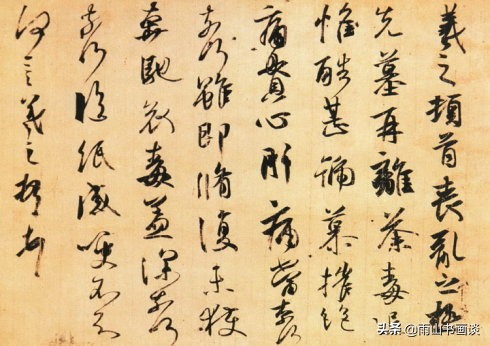 羲之頓首喪亂之極
先墓再離荼毒追
惟酷甚號慕摧絶
痛貫心肝痛當奈何
奈何雖即脩復未獲
奔馳哀毒益深奈何
奈何臨紙感哽不知
何言羲之頓首頓首
头条 @雨山书画谈